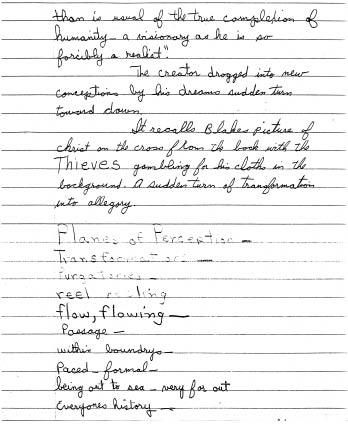 than is usual of the true complexion of
humanity — a visionary as he is so
forcibly a realist".
The creator drogged into new
conceptions by his dreams sudden turn
toward dawn.
It recalls Blakes picture of
christ on the cross from the back with the
Thieves gambling for his cloths in the
background. A sudden turn of transformation
into allegory.
Planes of Perception —
Transformations —
Purgatories —
reel reeling
flow, flowing —
Passage —
within boundrys —
Paced — formal —
being out to sea — very far out
Everyones history —